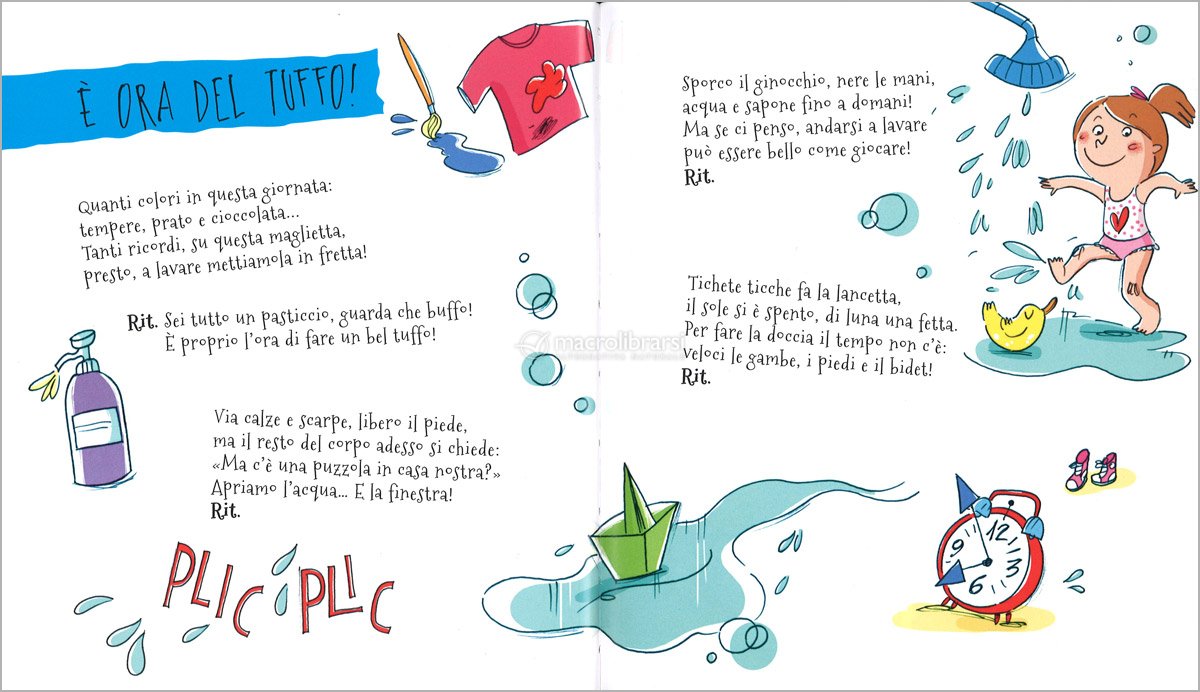 È ORA DEL TUFFO!
Quanti colori in questa giornata:
tempere, prato e cioccolata...
Tanti ricordi, su questa maglietta,
presto, a lavare mettiamola in fretta!
Rit. Sei tutto un pasticcio, guarda che buffo!
È proprio l'ora di fare un bel tuffo!
Via calze e scarpe, libero il piede,
ma il resto del corpo adesso si chiede:
«Ma c'è una puzzola in casa nostra?»
Apriamo l'acqua... E la finestra!
Rit.
PLIC PLIC
Sporco il ginocchio, nere le mani,
acqua e sapone fino a domani!
Ma se ci penso, andarsi a lavare
può essere bello come giocare!
Rit.
Tichete ticche fa la lancetta,
il sole si è spento, di luna una fetta.
Per fare la doccia il tempo non c'è:
veloci le gambe, i piedi e il bidet!
Rit.
12
9
3
6
macrolibrarsi